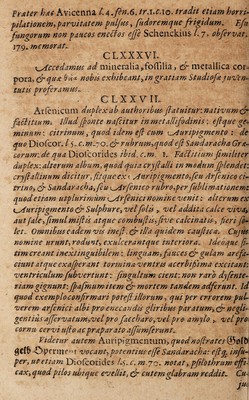 Præter hæc Avicenna l.4. fen.6. tr.1.c.10. tradit etiam horri-
pilationem, parvitatem pulsus, sudoremque frigidum. Esu
fungorum non paucos enectos esse Schenckius l.7. observat.
179. memorat.
CLXXXVI.
Accedamus ad mineralia, fossilia, & metallica cor-
pora, & quæ nobis exhibeant, in gratiam Studiosæ juven-
tutis proferamus.
CLXXXVII.
Arsenicum duplex ab authoribus statuitur: nativum &
factitium. Illud sponte nascitur in metallifodinis: estque ge-
minum: citrinum, quod idem est cum Auripigmento: de
quo Dioscor. l.5. c.m.70. & rubrum, quod est Sandaracha Græ-
corum: de qua Dioscorides ibid. c.m. 1. Factitium similiter
duplex: alterum album, quod quia crystalli in modum splendet
crystallinum dicitur, fitque ex Auripigmento, seu Arsenico ci-
trino, & Sandaracha, seu Arsenico rubro, per sublimationem:
quod etiam usu plurimum Arsenici nomine venit: alterum ex
Auripigmento & Sulphure, vel folis, vel addita calce viva,
aut sale, simul mistis atque combustis, sive calcinatis, fieri so-
let. Omnibus eadem vis inest, & illa quidem caustica. Cujus
nomine urunt, rodunt, exulcerantque interiora. Ideoque si-
tim creant inextinguibilem: linguam, fauces & gulam arefa-
ciunt atque exasperant: tormina ventris acerbissima excitant:
ventriculum subvertunt: singultum cient: non raro dysente-
riam gignunt: spasmum item & mortem tandem adferunt. Id
quod exemplo confirmari potest illorum, qui per errorem pul-
verem arsenici albi pro
gentius asservatum, vel pro saccharo, vel pro amylo, vel pro
cornu cervi usto ac præparato assumserunt.
Fidetur autem Auripigmentum, quod nostrates Gold
gelb Operment vocant, potentius esse Sandaracha: est, insu-
per, ut etiam Dioscorides l.5. c.m. 70. notat, psilothrum effi-
cax, quod pilos ubique evellit, & cutem glabram reddit. Cu-
jus